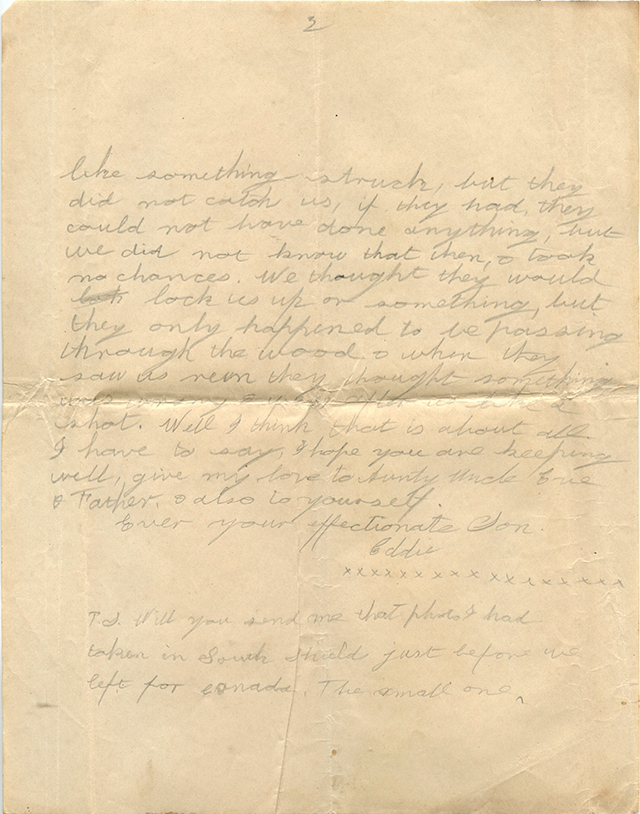 2
like something struck, but they
did not catch us, if they had, they
could not have done anything, but
we did not know that then, & took
no chances. We thought they would
lock us up or something, but
they only happened to be passing
through the wood & when they
saw us run they thought something
was wrong & was after us like a
shot. Well I think that is about all
I have to say, I hope you are keeping
well, give my love to Aunty Uncle Evie
& Father, & also to yourself.
Ever your affectionate Son.
Eddie
xxxxxxxxxxxxxxxxxx
P.S. Will you send me that photo I had
taken in South Shield just before we
left for canada. The small one.